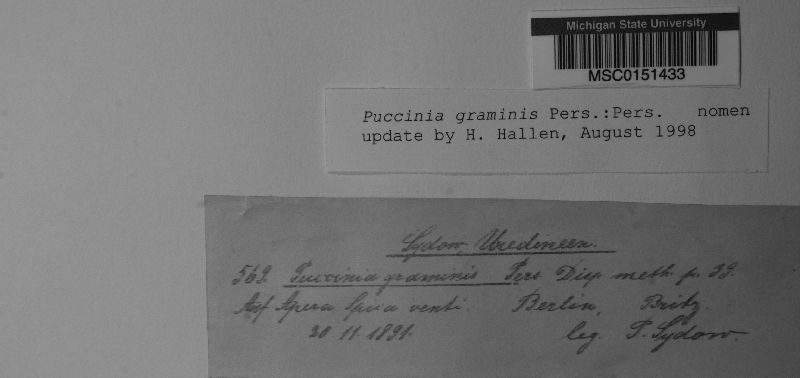 Michigan State University
MSC0151433
Puccinia graminis Pers.:Pers. nomen
update by H. Hallen, August 1998
Sydow, Uredineen.
562. Puccinia graminis Pers Disp. meth. p. 39.
Auf Apera Spica venti. Berlin, Britz.
20. 11. 1891. leg. P. Sydow.